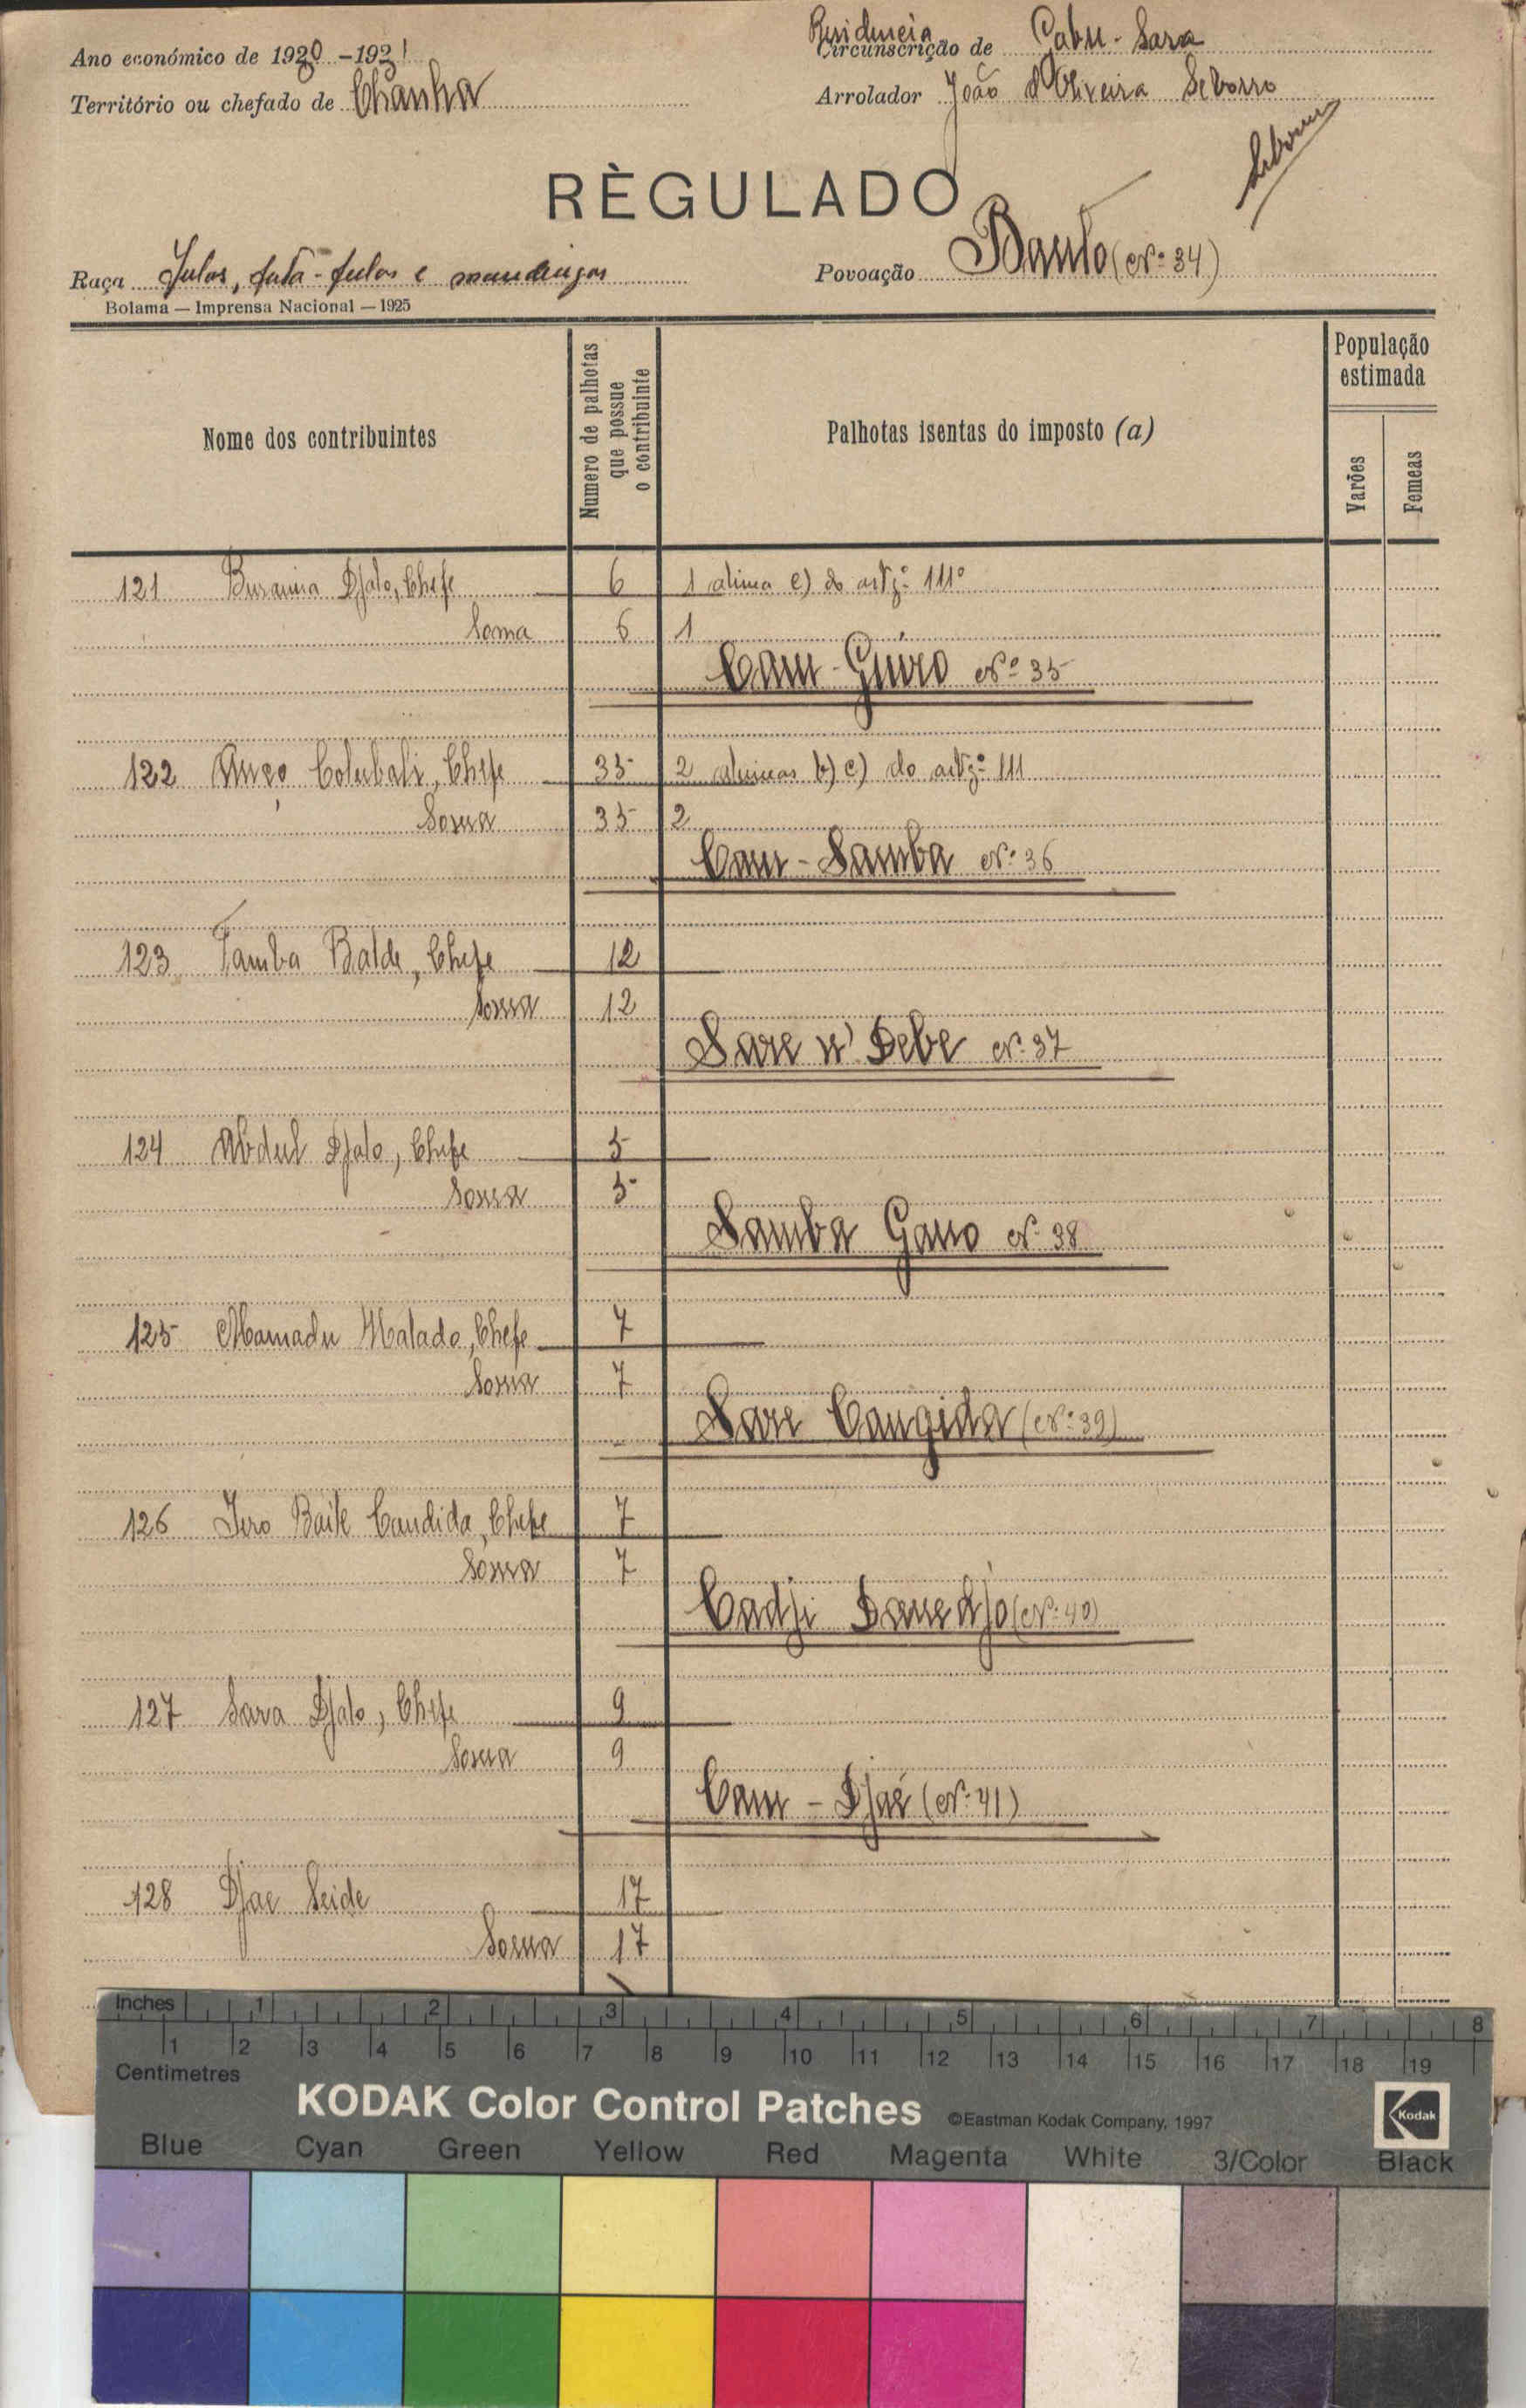 Residencia
Ano económico de 1920-1921 Circunscrição de Gabu-Sara
Território ou chefado de Chanha Arrolador João d'Oliveira
RÈGULADO
Raça Fulas, futa-fulas e mandingas Povoação (Nº 34)
Bolama — Imprensa Nacional — 1925
Nome dos contribuintes
Numero de palhotas que possue o contribuinte
Palhotas isentas do imposto (a)
População estimada
Varões
Femeas
121 Djalo, Chefe 6 1 alinea e) do artgº 111º
Soma 6 1
Cam-Guiro Nº 35
122 Colubali, Chefe 35 2 alineas b) e) do artgº 111
Soma 35 2
Cam-Samba Nº 36
123 Tamba Balde, Chefe 12
Soma 12
Sare n' Debe Nº 37
124 Abdul Djalo, Chefe 5
Soma 5
Samba Gano Nº 38
125 Mamadu Malado, Chefe 7
Soma 7
Sare Cangida (Nº 39)
126 Iero Baile Candida, Chefe 7
Soma 7
Cadji (Nº 40)
127 Sara Djalo, Chefe 9
Soma 9
Cam-Djaé (Nº 41)
128 Djae Seide 17
Soma 17
Inches 1 2 3 4 5 6 7 8
1 2 3 4 5 6 7 8 9 10 11 12 13 14 15 16 17 18 19
Centimetres
KODAK Color Control Patches ©Eastman Kodak Company, 1997 Kodak
Blue Cyan Green Yellow Red Magenta White 3/Color Black